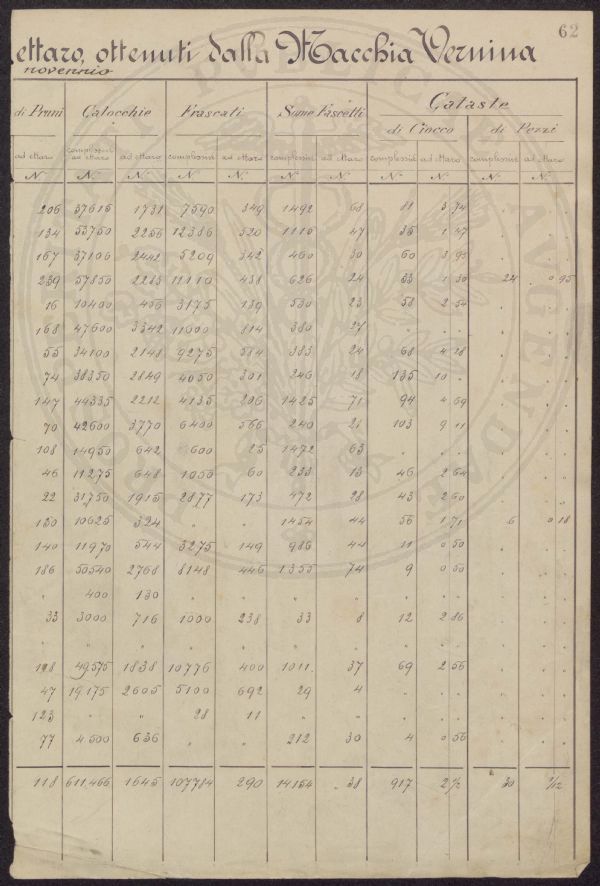 62
ettaro, ottenuti dalla Macchia Vernina
novennio
di Pruni Calocchie Frascati Some Fascetti Cataste
di Ciocco di Pezzi
ad ettaro complessive ad ettaro ad ettaro complessive ad ettaro complessive ad ettaro complessive ad ettaro complessive ad ettaro
N. N. N. N. N. N. N. N. N. N. N.
206 37615 1731 7590 349 1492 68 81 3 74 . .
134 53750 2256 12386 520 1115 47 35 1 47 . .
167 37106 2442 5209 342 460 30 60 3 95 . .
239 57850 2285 11110 438 626 24 33 1 30 24 0 95
16 10400 456 3175 139 530 23 58 2 54 . .
168 47600 3342 11600 814 380 27 . . . .
55 34100 2148 9275 584 383 24 68 4 28 . .
74 38350 2849 4050 301 246 18 135 10 . . .
147 44335 2212 4135 206 1425 71 94 4 69 . .
70 42600 3770 6400 566 240 21 103 9 11 . .
108 14950 642 600 25 1472 63 . . . .
46 11275 648 1050 60 233 13 46 2 64 . .
22 31750 1915 2877 173 472 28 43 2 60 . .
130 10625 324 " " 1454 44 56 1 71 6 0 18
140 11970 544 3275 149 986 44 11 0 50 . .
186 50540 2768 8148 446 1355 74 9 0 50 . .
" 400 130 " " " " " " . .
33 3000 716 1000 238 33 8 12 2 86 . .
" " " " " " " " " . .
118 49575 1838 10776 400 1011. 37 69 2 56 . .
47 19175 2605 5100 692 29 4 . . . .
123 " " 28 11 " " . . . .
77 4500 636 " " 212 30 4 0 56 . .
118 611.466 1645 107784 290 14154 38 917 2 1/2 30 1/12